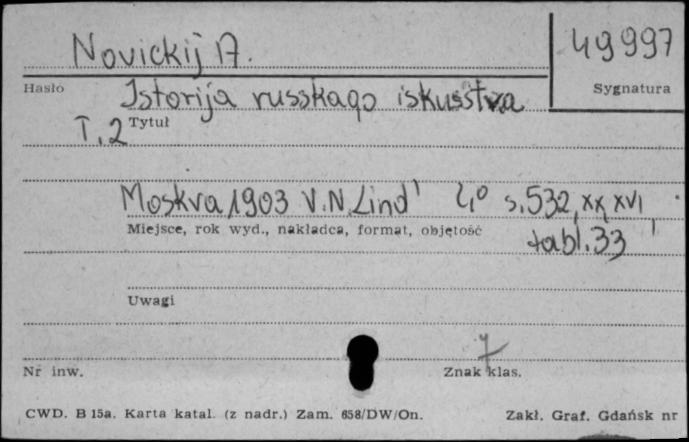 Novickij A.
49997
Hasło
Sygnatura
Istorija russkago iskusstva
T. 2 Tytuł
Moskva 1903 V.N. Lind' 4° s. 532, XXXVI,
Miejsce, rok wyd., nakładca, format, objętość
tabl. 33
Uwagi
7
Nr inw.
Znak klas.
CWD. B 15a. Karta katal. (z nadr.) Zam. 658/DW/On.
Zakł. Graf. Gdańsk nr